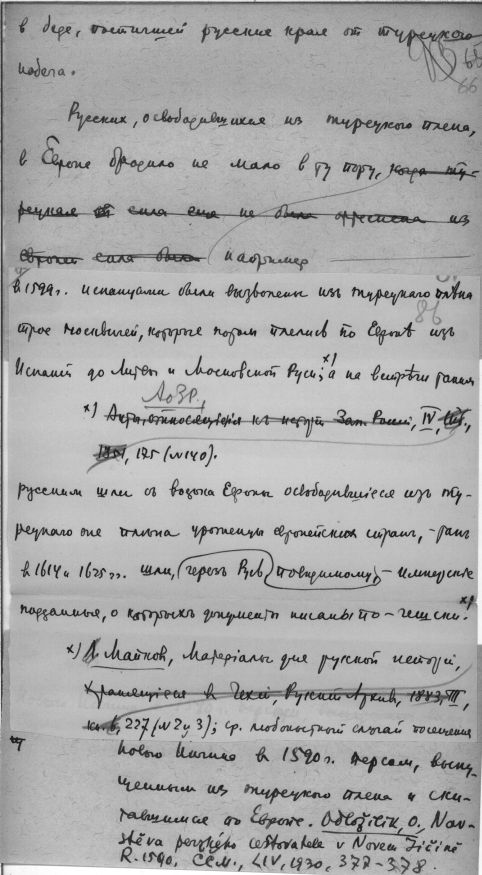 в беде, постигшей русские края от турецкого
набега.
66
66
Русских, освободившихся из турецкого плена,
в Европе бродило не мало в ту пору, когда ту-
рецкая сила еще не была оттеснена из
Европы сила была например
86
в 1599 г. испанцами были вызволены изъ турецкаго плѣна
трое москвичей, которые потом плелись по Европѣ изъ
Испаніи до Литвы и Московской Руси, x) а на встрѣчу таким
АоЗР.,
x) Акты, относящіеся къ исторіи Зап. Россіи, IV, Спб.,
1851, 175 (№140).
русским шли съ востока Европы освободившіеся изъ ту-
рецкаго же плѣна уроженцы европейских стран, - так
в 1614 и 1625 гг. шли, через Русь, повидимому, - имперские
подданные, о которыхъ документы писаны по-чешски. x)
x) Л. Майков, Матеріалы для русской исторіи,
хранящіеся в Чехіи, Русскій Архив, 1883, III,
кн. 6, 227 (№ 2 и 3); ср. любопытный случай посещения
Нового Ичина в 1590 г. персом, выпу-
щенным из турецкого плена и ски-
тавшимся по Европе. Odložilík, O., Náv-
štěva perského cestovatele v Novém Jičíně
R. 1590, ČČM., LIV, 1930, 377-378.